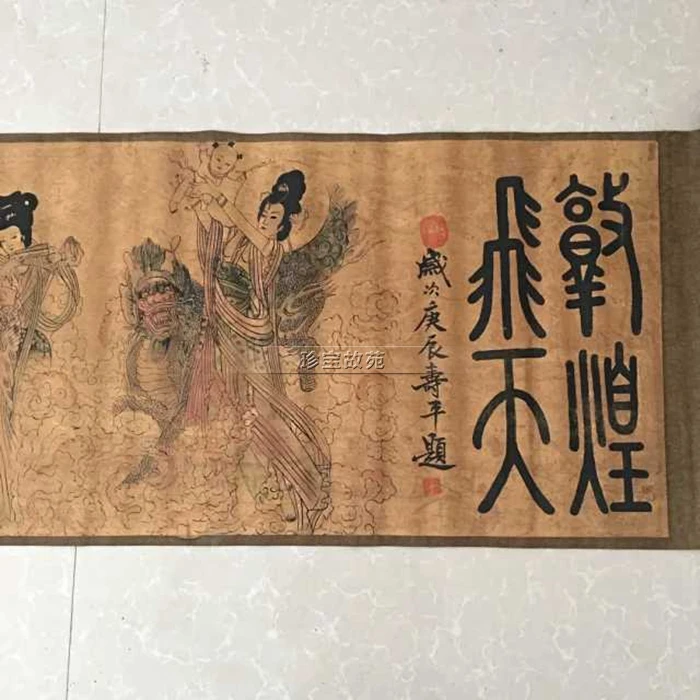 敦煌
飛天
歲次庚辰壽平題
珍宝故苑